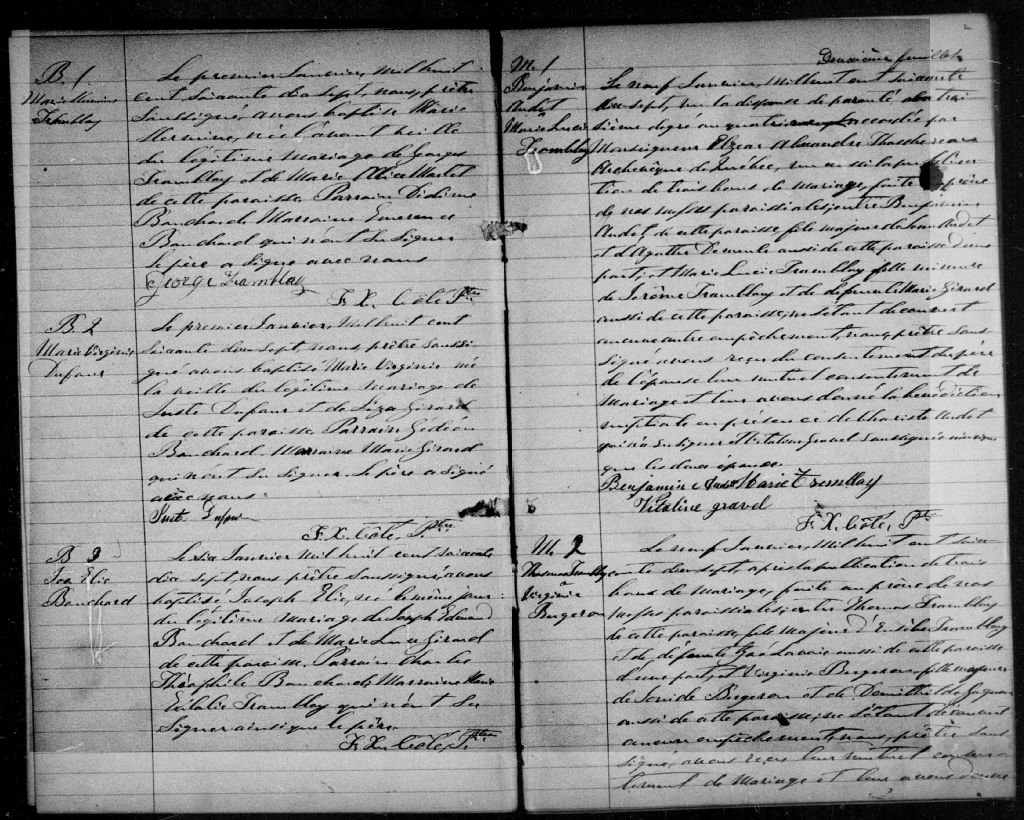 B. 1
Marie Hermine
Tremblay
Le premier Janvier, Mil huit
cent soixante dix sept, nous, prêtre
soussigné, avons baptisé Marie
Hermine, née l'avant veille
du légitime Mariage de Georges
Tremblay et de Marie Alice Martel
de cette paroisse. Parrain Didime
Bouchard Marraine Emerence
Bouchard qui n'ont su signer
le père a signé avec nous
George Tramblay
F. X. Côté, Ptre
B. 2
Marie Virginie
Dufour
Le premier Janvier, Mil huit cent
soixante dix sept, nous, prêtre soussi
gné avons baptisé Marie Virginie né
la veille du légitime mariage de
Juste Dufour et de Léza Girard
de cette paroisse Parrain Gédéon
Bouchard Marraine Marie Girard
qui n'ont su signer. Le père a signé
avec nous.
Just Dufour
F. X. Côté, Ptre
B 3
Jos Elie
Bouchard
Le six Janvier mil huit cent soixante
dix sept, nous prêtre soussigné, avons
baptisé Joseph Elie, né le même jour
du légitime mariage de Joseph Edouard
Bouchard et de Marie Luce Girard
de cette paroisse. Parrain Charles
Théophile Bouchard, Marraine Marie
Eulalie Tremblay qui n'ont su
signer ainsi que le père.
F. X. Côté, Ptre
Deuxième feuillet
M. 1
Benjamin
Audet
&
Marie Lucie
Tremblay
Le neuf Janvier, Mil huit cent soixante
dix sept, vu la dispense de parenté du trois
sième degré au quatrième accordée par
Monseigneur Elzear Alexandre Taschereau
Archevêque de Québec, vu aussi la publica
tion de trois bans de mariage, faite au prône
de nos messes paroissiales, entre Benjamin
Audet, de cette paroisse fils majeur de Jean Audet
et d'Agathe Demeule aussi de cette paroisse d'une
part; et Marie Lucie Tremblay fille mineure
de Jérôme Tremblay et de défunte Marie Girard
aussi de cette paroisse, ne s'étant découvert
aucun autre empêchement, nous, prêtre sous
signé, avons reçu du consentement du père
de l'épouse leur mutuel consentement de
Mariage et leur avons donné la bénédiction
nuptiale en présence de Audet
qui n'a su signer et Vitaline Gravel soussignée ainsi que
que les deux époux.
Benjamin Audet Marie L Tremblay
Vitaline gravel
F. X. Côté, Ptre
M. 2
Thomas Tremblay
&
Virginie
Bergeron
Le neuf Janvier, Mil huit cent soix
ante dix sept, après la publication de trois
bans de Mariage, faite au prône de nos
messes paroissiales, entre Thomas Tremblay
de cette paroisse, fils majeur d'Eusèbe Tremblay
et de défunte Lavoie aussi de cette paroisse
d'une part, et Virginie Bergeron, fille majeure
de Bergeron et de Gagnon
aussi de cette paroisse, ne s'étant découvert
aucun empêchement, nous, prêtre sous
signé, avons reçu leur mutuel consen
tement de Mariage et leur avons donné